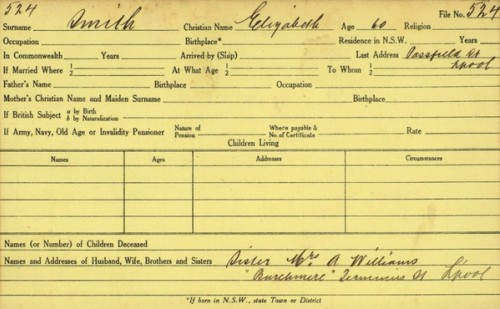 524 File No. 524
Surname Smith Christian Name Elizabeth Age 60 Religion
Occupation Birthplace* Residence in N.S.W. Years
In Commonwealth Years Arrived by (Ship) Last Address Passfield St
If Married Where 1 2 At What Age 1 2 To Whom 1 2 L'pool
Father's Name Birthplace Occupation
Mother's Christian Name and Maiden Surname Birthplace
If British Subject a by Birth b by Naturalization
If Army, Navy, Old Age or Invalidity Pensioner Nature of Pension Where payable & No. of Certificate Rate
Children Living
Names Ages Addresses Circumstances
Names (or Number) of Children Deceased
Names and Addresses of Husband, Wife, Brothers and Sisters Sister Mrs A Williams
"Burchmere" Terminus St L'pool
*If born in N.S.W., state Town or District